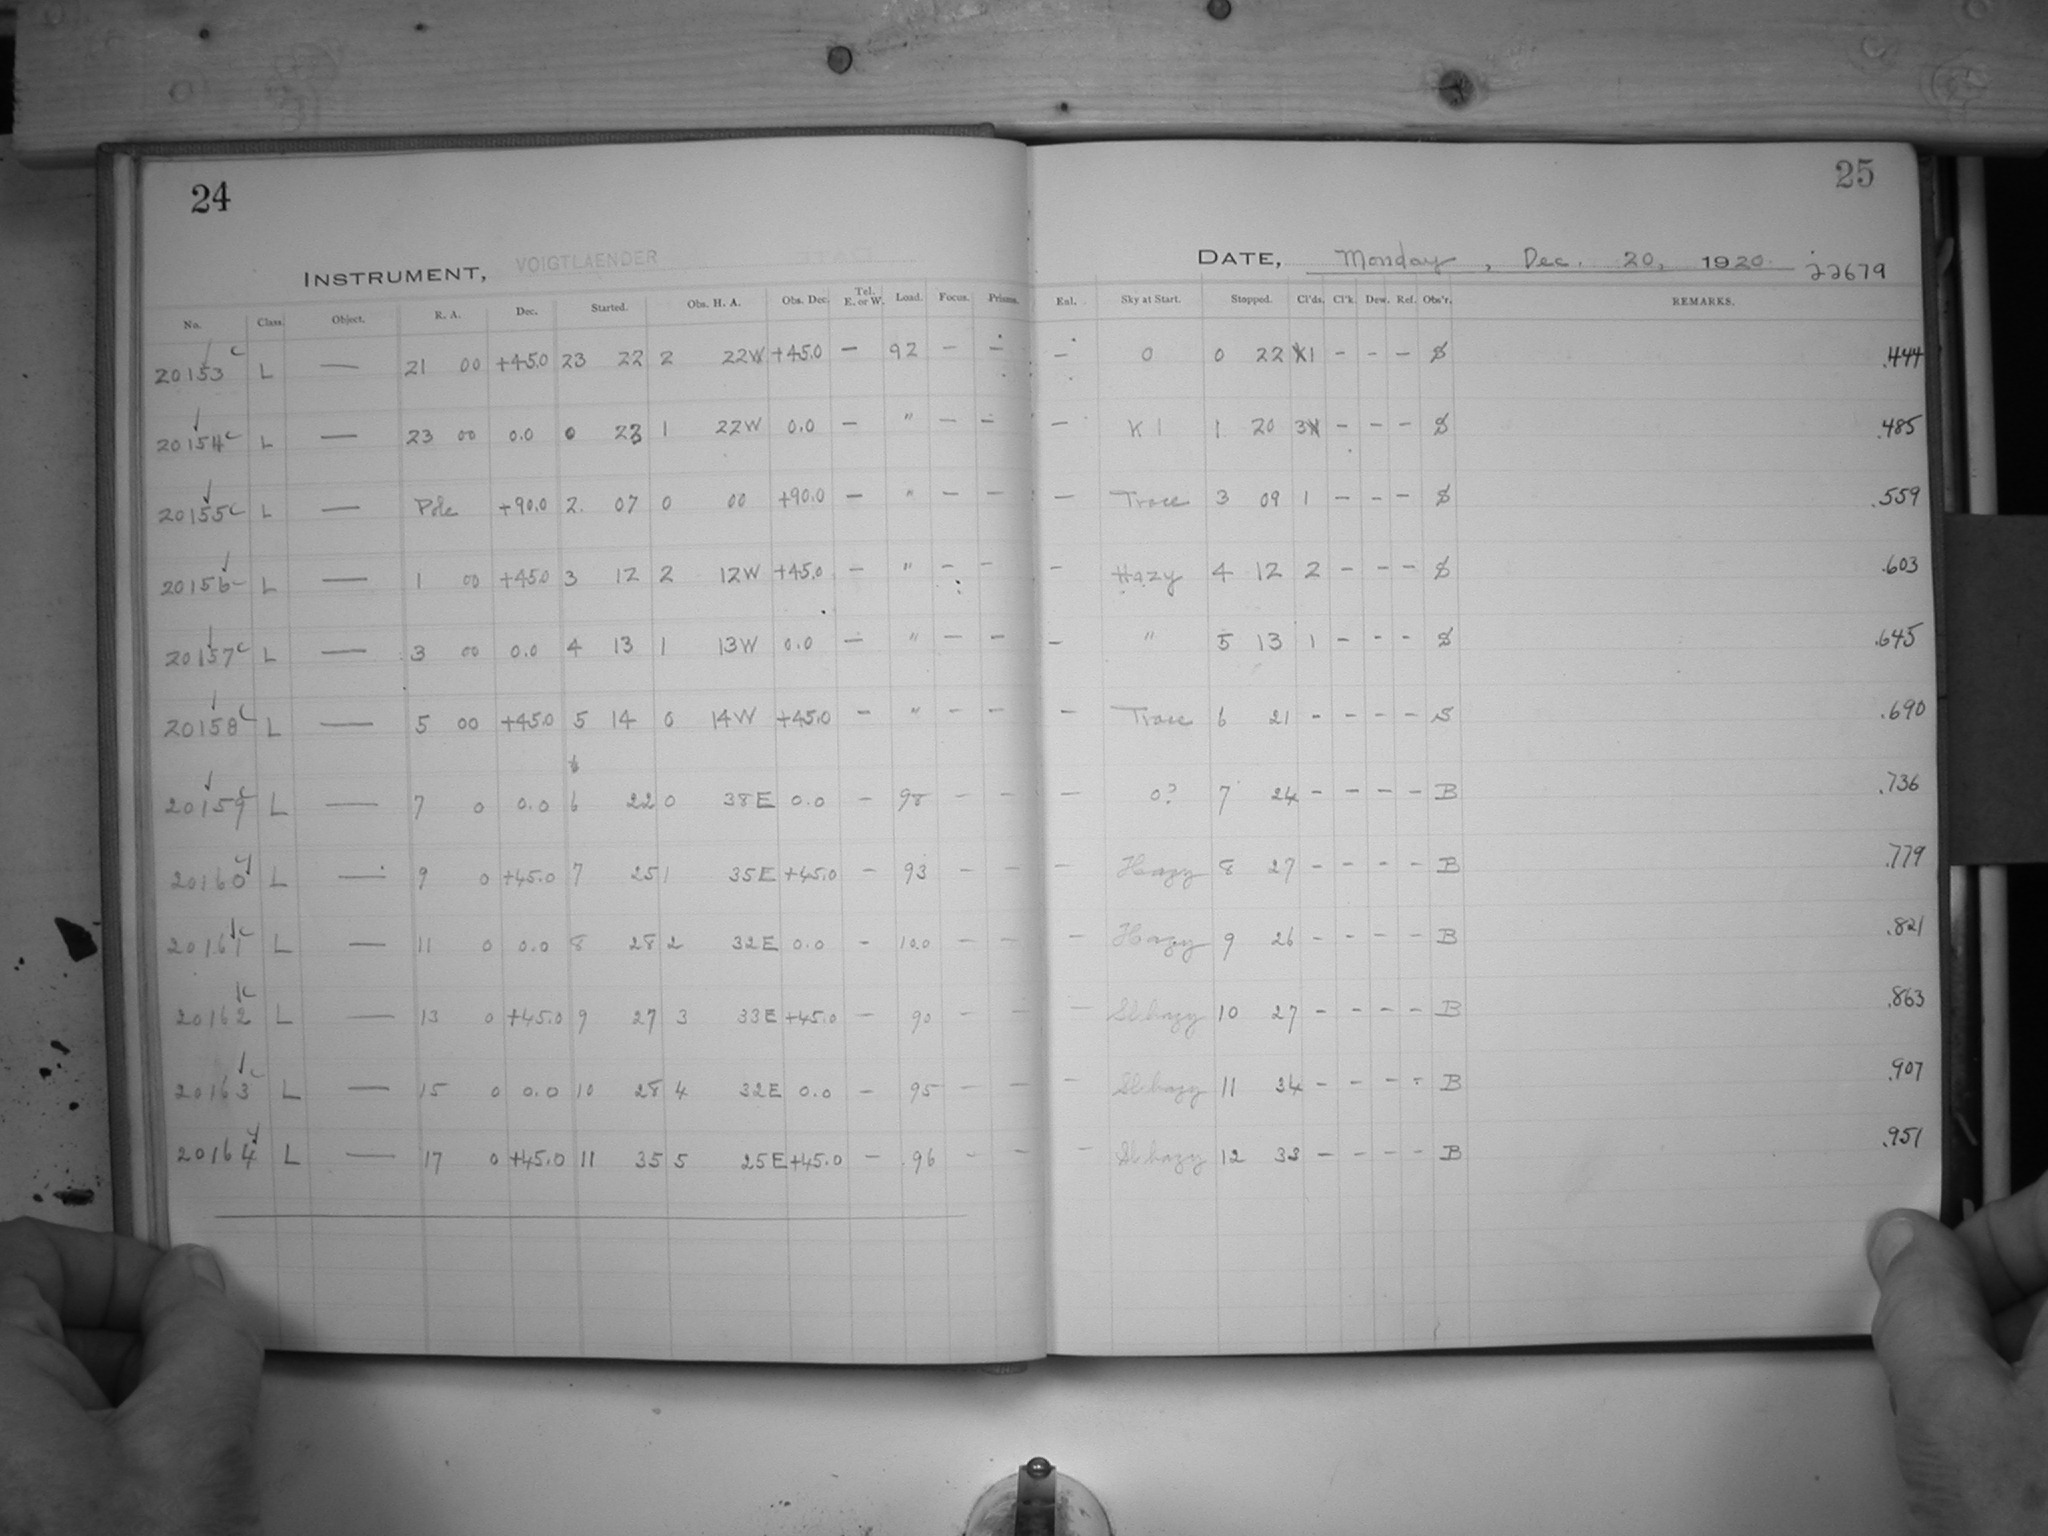 24
25
INSTRUMENT, VOIGTLAENDER
DATE, Monday, Dec. 20, 1920. 22679
No. Class. Object. R. A. Dec. Started. Obs. H. A. Obs. Dec. Tel. E. or W. Load. Focus. Prisms. Enl. Sky at Start. Stopped. Cl'ds. Cl'k. Dew. Ref. Obs'r. REMARKS.
20153 c L — 21 00 +45.0 23 22 2 22W +45.0 — 92 — — — 0 0 22 1 — — — S .444
20154 c L — 23 00 0.0 0 23 1 22W 0.0 — " — — — K 1 1 20 3 — — — S .485
20155 c L — Pole +90.0 2. 07 0 00 +90.0 — " — — — Trace 3 09 1 — — — S .559
20156 c L — 1 00 +45.0 3 12 2 12W +45.0 — " — — — Hazy 4 12 2 — — — S .603
20157 c L — 3 00 0.0 4 13 1 13W 0.0 — " — — — " 5 13 1 — — — S .645
20158 c L — 5 00 +45.0 5 14 0 14W +45.0 — " — — — Trace 6 21 — — — — S .690
20159 c L — 7 0 0.0 6 22 0 38E 0.0 — 98 — — — 0? 7 24 — — — — B .736
20160 c L — 9 0 +45.0 7 25 1 35E +45.0 — 93 — — — Hazy 8 27 — — — — B .779
20161 c L — 11 0 0.0 8 28 2 32E 0.0 — 100 — — — Hazy 9 26 — — — — B .821
20162 c L — 13 0 +45.0 9 27 3 33E +45.0 — 90 — — — Sl hazy 10 27 — — — — B .863
20163 c L — 15 0 0.0 10 28 4 32E 0.0 — 95 — — — Sl hazy 11 34 — — — — B .907
20164 c L — 17 0 +45.0 11 35 5 25E +45.0 — 96 — — — Sl hazy 12 38 — — — — B .951